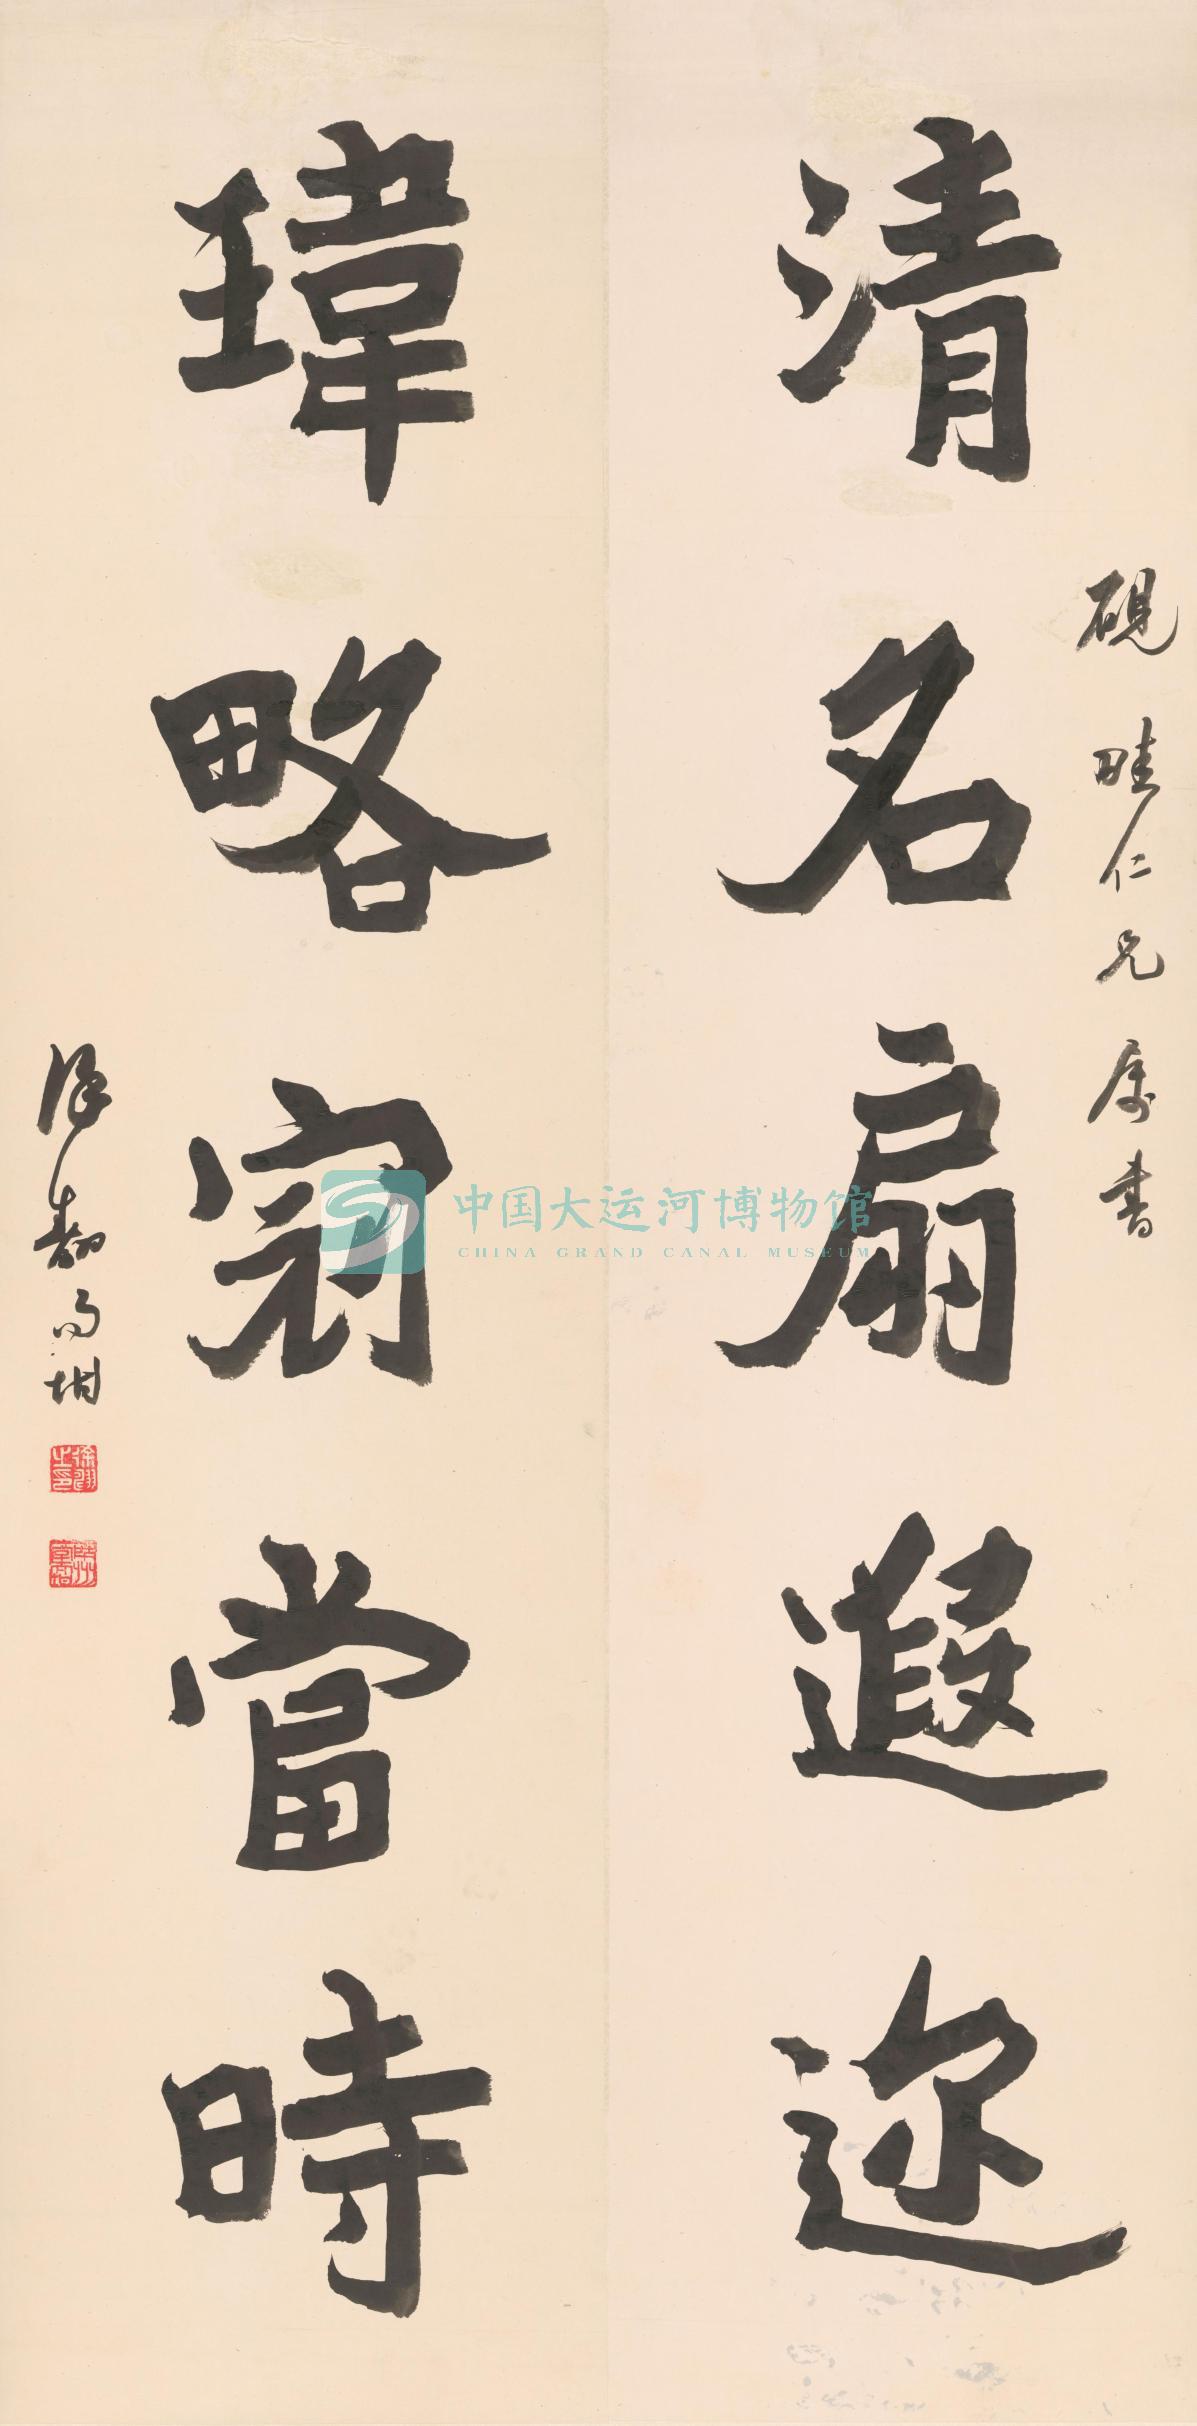 清名扇遐迩
硯畦仁兄属書
瑋略冠當時
中国大运河博物馆
CHINA GRAND CANAL MUSEUM